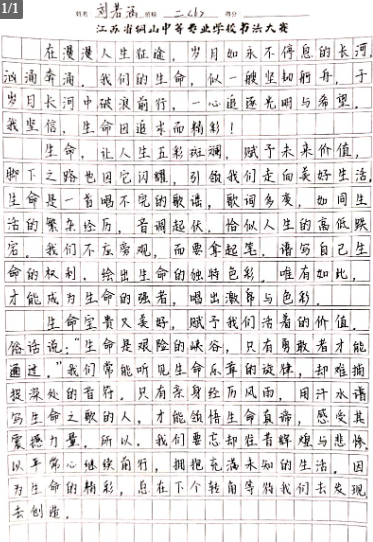 1/1
姓名 刘若涵 班级 二(6) 得分
江苏省铜山中等专业学校书法大赛
在漫漫人生征途，岁月如永不停息的长河，
汹涌奔涌。我们的生命，似一艘坚韧的舟，于
岁月长河中破浪前行，一心追逐光明与希望。
我坚信，生命因追求而精彩！
生命，让人生五彩斑斓，赋予未来价值，
脚下之路也因它闪耀，引领我们走向美好生活。
生命是一首唱不完的歌谣，歌词多变，如同生
活的繁杂经历，音调起伏，恰似人生的高低跌
宕。我们不应旁观，而要拿起笔，谱写自己生
命的权利，绘出生命的独特色彩。唯有如此，
才能成为生命的强者，唱出激昂与色彩。
生命宝贵又美好，赋予我们活着的价值。
俗话说："生命是艰险的峡谷，只有勇敢者才能
通过。"我们常能听见生命乐章的旋律，却难捕
捉深处的音符。只有亲身经历风雨，用汗水谱
写生命之歌的人，才能领悟生命真谛，感受其
震撼力量。所以，我们要忘却往昔辉煌与悲惨，
以平常心继续前行，拥抱充满未知的生活。因
为生命的精彩，总在下个转角等待我们去发现，
去创造。